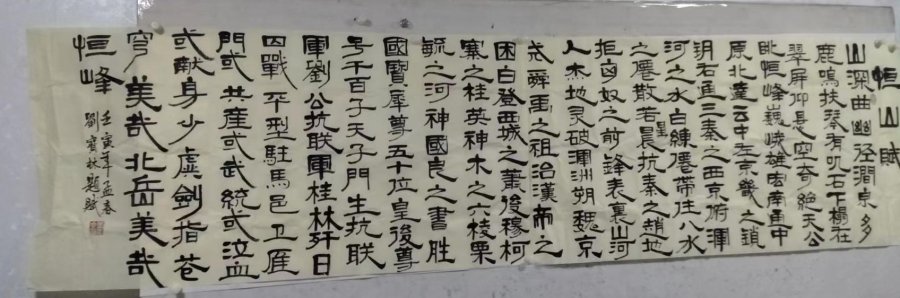 恒山賦
山深曲幽径澗点多
鹿鳴扶琴有叽石下榻在
翠屏仰悬空奇絶天公
毗恒峰巍峨雄宏南車中
原北冀云中左京畿之鎖
玥右通三秦之西京俯渾
河之水白練僊帶住八水
之僊散若晨星抗秦之趙地
拒匈奴之前鋒表裏山河
人杰地灵破渾洲朔魏京
尧舜禹之祖治漢帝之
困白登西城之蕭後穆柯
寨之桂英神木之六棱栗
毓之河神國良之書胜
國寶犀尊五十位皇後尊
号千百子天子門生抗联
軍劉公抗联軍桂林歼日
四戰平型駐馬邑卫雁
門或共産或武統或泣血
或献身少虚劍指苍
穹美哉北岳美哉
恒峰
壬寅年孟春
劉寳林題賦